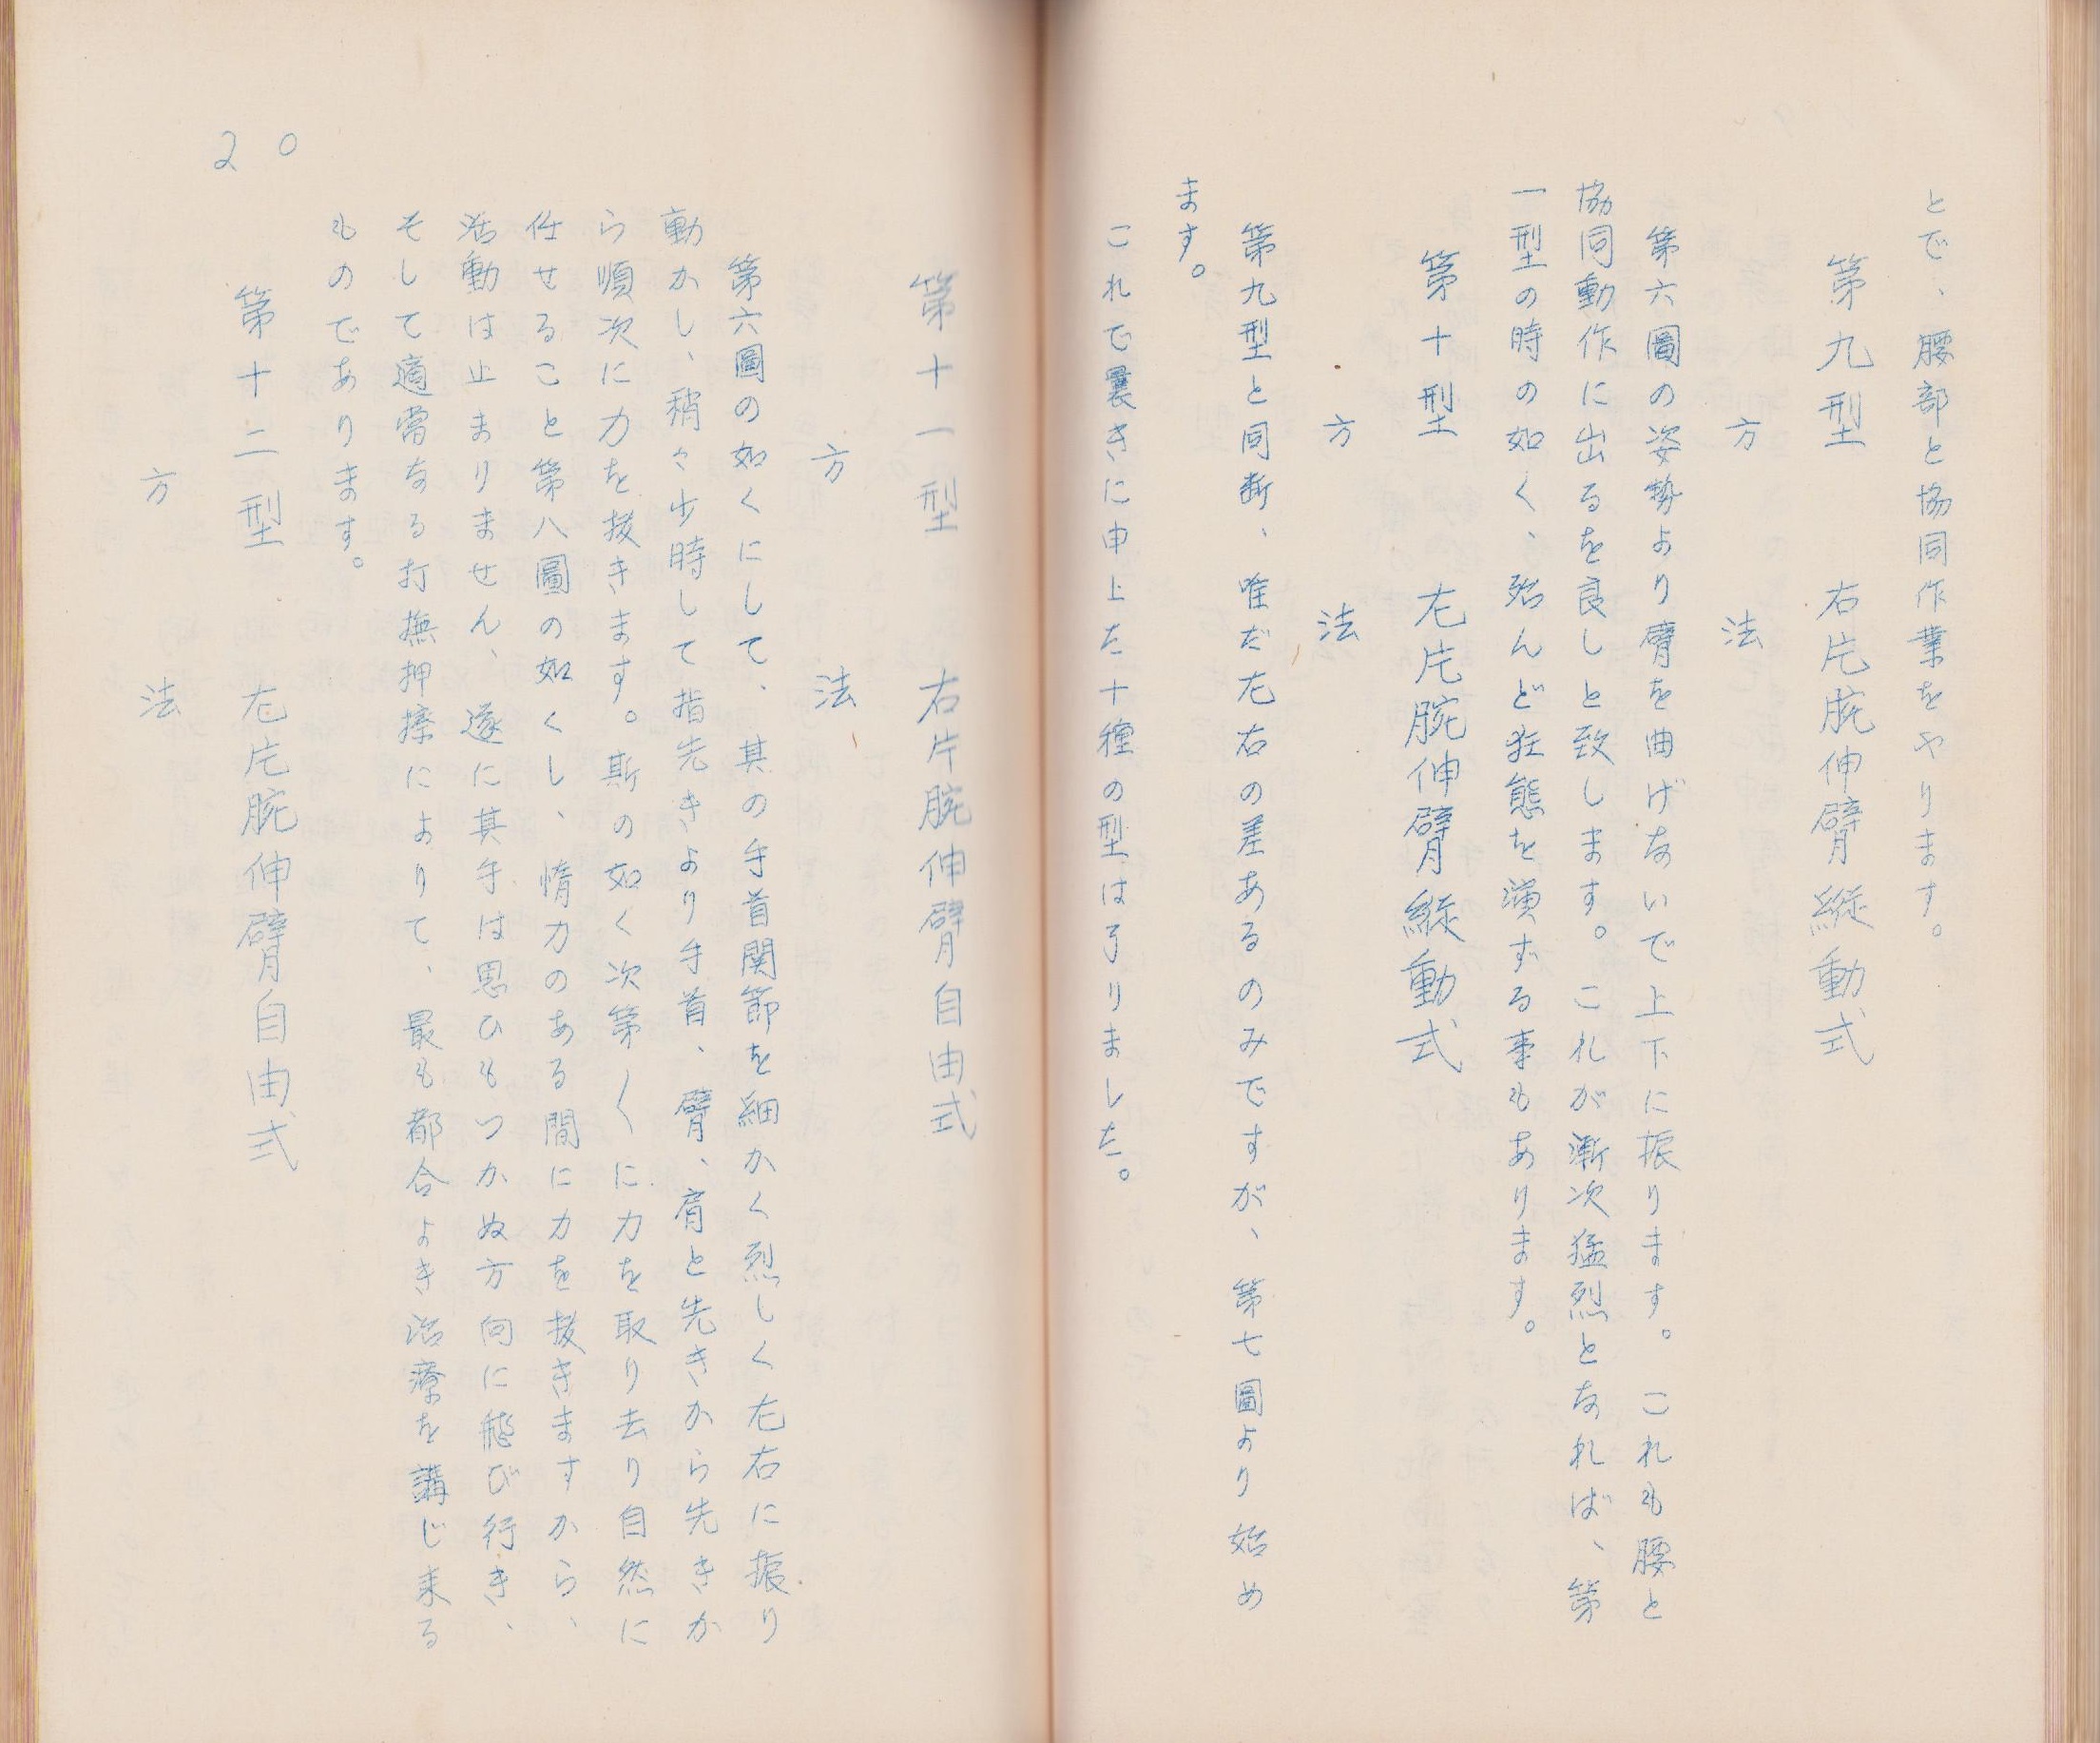 とで、腰部と協同作業をやります。
第九型　右片腕伸臂縦動式
方　法
第六圖の姿勢より臂を曲げないで上下に振ります。これも腰と
協同動作に出るを良しと致します。これが漸次猛烈となれば、第
一型の時の如く、殆んど狂態を演ずる事もあります。
第十型　左片腕伸臂縦動式
方　法
第九型と同断、唯だ左右の差あるのみですが、第七圖より始め
ます。
これで曩きに申上た十種の型は了りました。
第十一型　右片腕伸臂自由式
方　法
第六圖の如くにして、其の手首関節を細かく烈しく左右に振り
動かし、稍々少時して指先きより手首、臂、肩と先きから先きか
ら順次に力を抜きます。斯の如く次第〱に力を取り去り自然に
任せること第八圖の如くし、惰力のある間に力を抜きますから、
活動は止まりません、遂に其手は思ひもつかぬ方向に飛び行き、
そして適當なる打撫押擦によりて、最も都合よき治療を講じ来る
ものであります。
20
第十二型　左片腕伸臂自由式
方　法